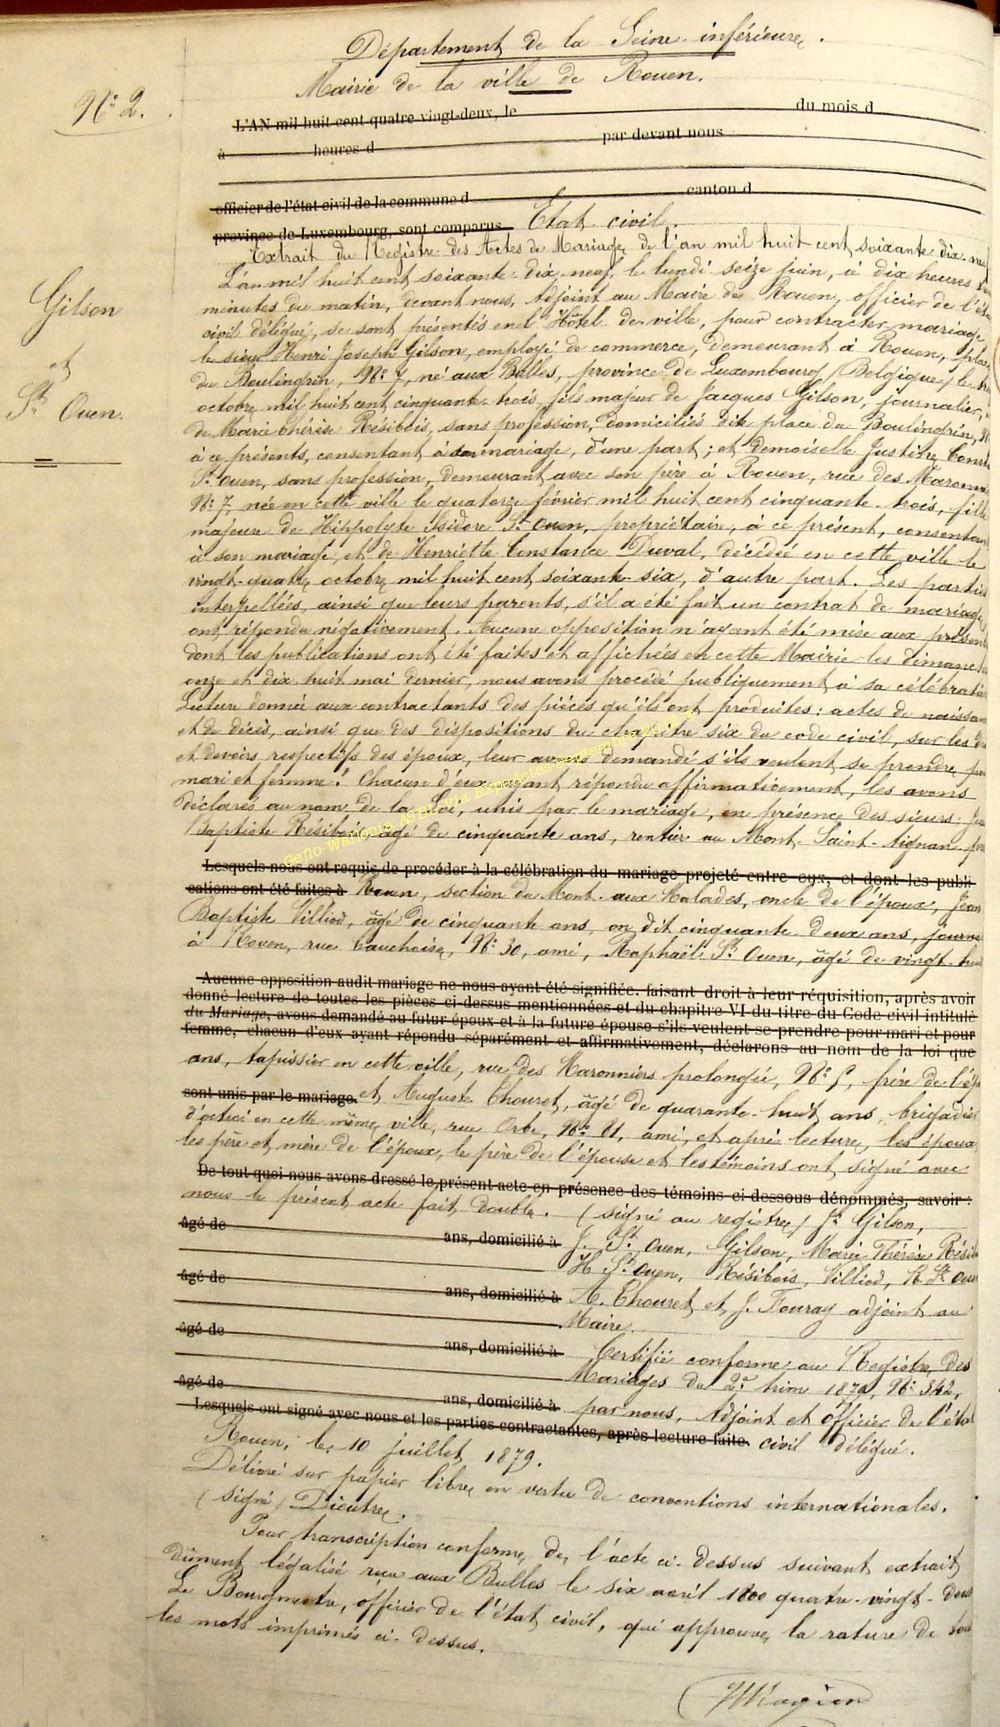 Département de la Seine inférieure.
Mairie de la ville de Rouen.
N° 2.
L'AN mil huit cent quatre-vingt-deux, le du mois d
à heures d par devant nous
officier de l'état civil de la commune d canton d
province de Luxembourg, sont comparus Etat civil.
Extrait du Registre des Actes de Mariage de l'an mil huit cent soixante dix neuf
L'an mil huit cent soixante-dix-neuf, le lundi seize juin, à dix heures
minutes du matin, devant nous, Adjoint au Maire de Rouen, officier de l'état
civil délégué, se sont présentés en l'Hôtel de ville, pour contracter mariage,
le sieur Henri Joseph Gilson, employé de commerce, demeurant à Rouen, place
Gilson
et
St Ouen.
du Boulingrin, N° 7, né aux Bulles, province de Luxembourg (Belgique) le
octobre mil huit cent cinquante-trois, fils majeur de Jacques Gilson, journalier,
de Marie Thérèse Résibois, sans profession, domiciliés dite place du Boulingrin,
à ce présents, consentant à son mariage, d'une part; et Demoiselle Justine
St Ouen, sans profession, demeurant avec son père à Rouen, rue des
N° 7, née en cette ville le quatorze février mil huit cent cinquante-trois, fille
majeure de Hippolyte Isidore St Ouen, propriétaire, à ce présent, consentant
à son mariage, et de Henriette Constance Duval, décédée en cette ville le
vingt-quatre octobre mil huit cent soixante-six, d'autre part. Les parties
interpellées, ainsi que leurs parents, s'il a été fait un contrat de mariage
ont répondu négativement. Aucune opposition n'ayant été mise aux présentes
dont les publications ont été faites et affichées en cette Mairie les dimanches
onze et dix huit mai dernier, nous avons procédé publiquement à sa célébration
Lecture donnée aux contractants des pièces qu'ils ont produites: actes de naissance
et de décès, ainsi que des dispositions du chapitre six du code civil, sur les
et devoirs respectifs des époux, leur avons demandé s'ils veulent se prendre pour
mari et femme? Chacun d'eux ayant répondu affirmativement, les avons
déclarés au nom de la Loi, unis par le mariage, en présence des sieurs: Jean
Baptiste Résibois âgé de cinquante ans, rentier au Mont-Saint-Aignan
Lesquels nous ont requis de procéder à la célébration du mariage projeté entre eux, et dont les publi-
cations ont été faites à Rouen, section du Mont-aux-Malades, oncle de l'époux, Jean
Baptiste Villiod, âgé de cinquante ans, on dit cinquante-deux ans,
à Rouen, rue Cauchoise, N° 30, ami, Raphaël St Ouen, âgé de vingt-huit
Aucune opposition audit mariage ne nous ayant été signifiée, faisant droit à leur réquisition, après avoir
donné lecture de toutes les pièces ci-dessus mentionnées et du chapitre VI du titre du Code civil intitulé
du Mariage, avons demandé au futur époux et à la future épouse s'ils veulent se prendre pour mari et pour
femme, chacun d'eux ayant répondu séparément et affirmativement, déclarons au nom de la loi que
ans, tapissier en cette ville, rue des Maronniers prolongée, N° 5, frère de
sont unis par le mariage. et Auguste Chouret, âgé de quarante-huit ans, brigadier
d'octroi en cette même ville, rue Orbe, N° 81, ami, et après lecture, les époux,
les père et mère de l'époux, le père de l'épouse et les témoins ont signé avec
De tout quoi nous avons dressé le présent acte en présence des témoins ci-dessous dénommés, savoir:
nous le présent acte fait double. (signé au registre) Gilson,
âgé de ans, domicilié à J. St Ouen, Gilson, Marie Thérèse
H. St Ouen, Résibois, Villiod, R. St Ouen
âgé de ans, domicilié à A. Chouret et J. Fouray adjoint au
Maire.
âgé de ans, domicilié à Certifié conforme au Registre des
Mariages du 2e trim 1879, N° 342,
âgé de ans, domicilié à par nous, Adjoint et officier de l'état
Lesquels ont signé avec nous et les parties contractantes, après lecture faite. civil délégué.
Rouen, le 10 juillet 1879.
Délivré sur papier libre en vertu de conventions internationales.
(signé) Dieutre.
Pour transcription conforme de l'acte ci-dessus suivant extrait
dûment légalisé reçu aux Bulles le six avril 1800 quatre-vingt-deux
Le Bourgmestre, officier de l'état civil, qui approuve la rature de tous
les mots imprimés ci-dessus.